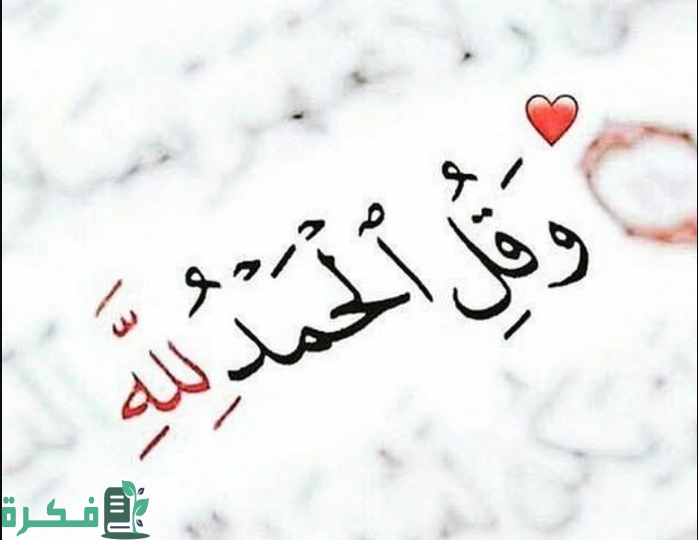 وَقُلِ ٱلْحَمْدُ لِلَّهِ
فكرة